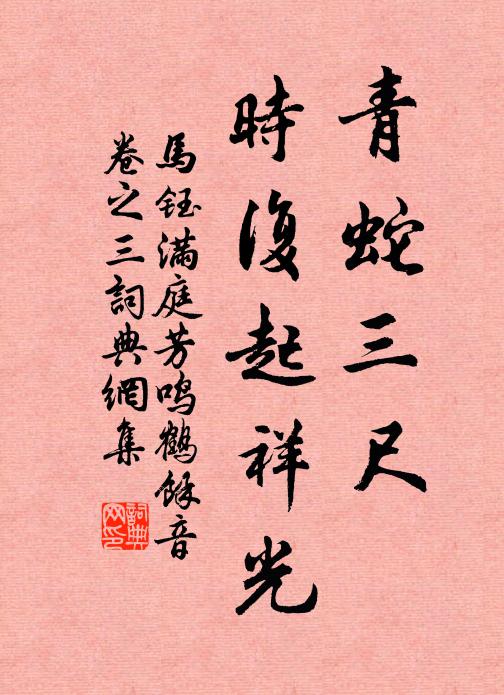 青蛇三尺
時復起祥光
馬鈺滿庭芳鳴鶴餘音
卷之三詞典網集
詞典網印